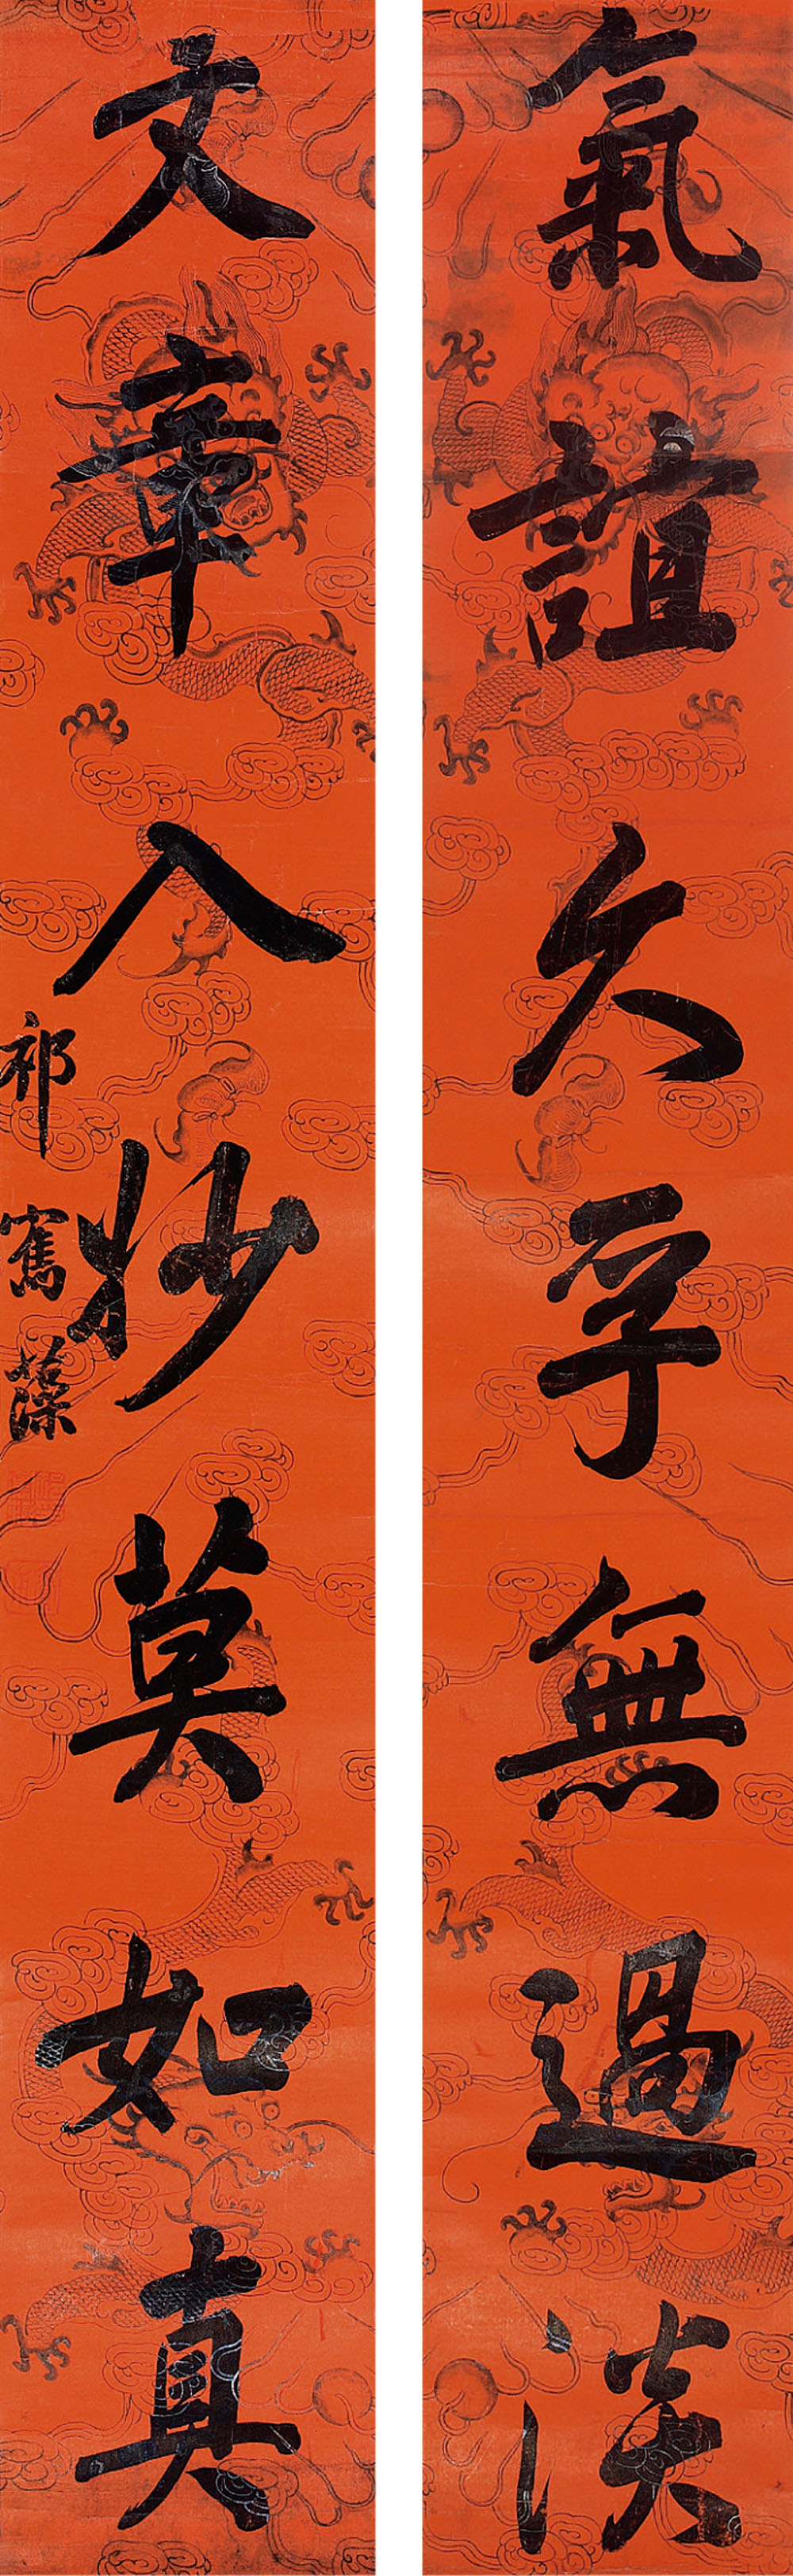 氣誼久孚無過淡
文章入妙莫如真
祁寯藻